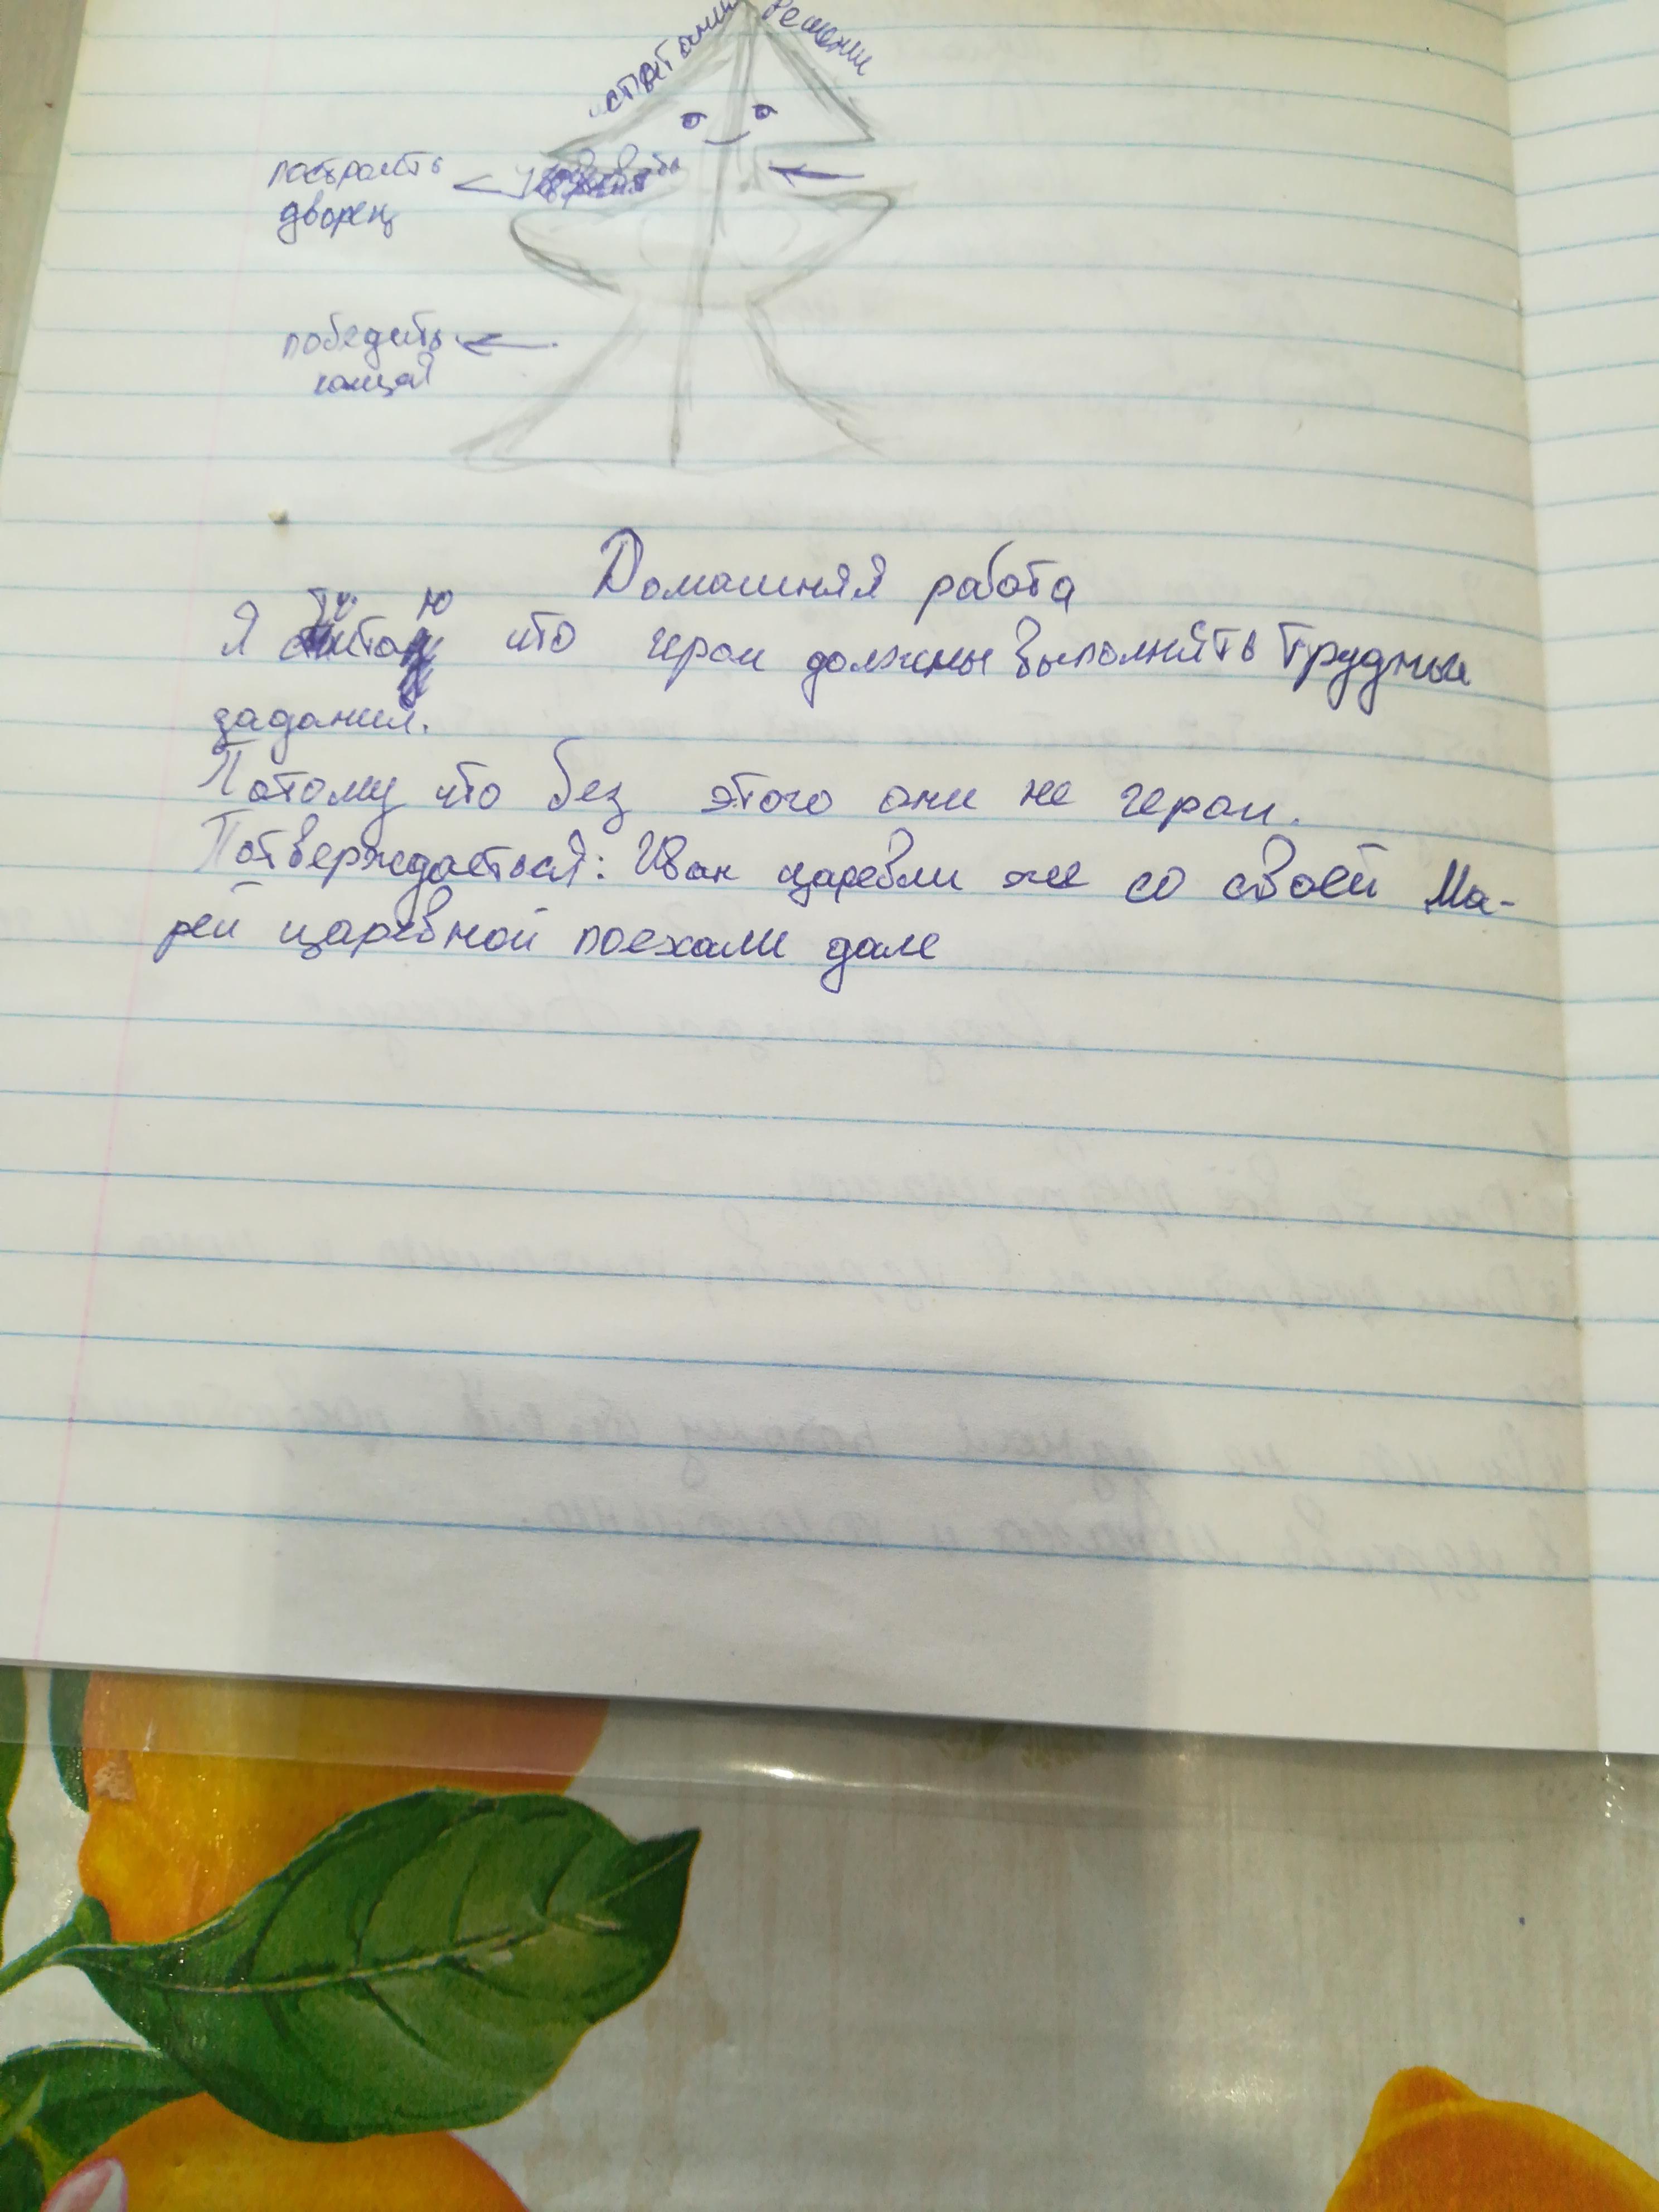 решение
построить
дворец
победить
кощей
Домашняя работа
Я что герои должны выполнять трудные
задания.
Потому что без этого они не герои.
Потверждаеться: Иван царевли же со своей Ма-
рей царевной поехали дале